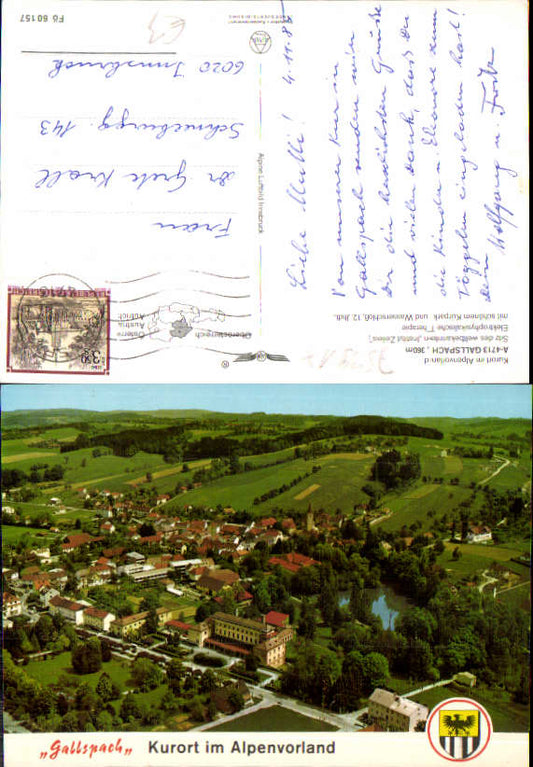 Fö 60157
Kurort im Alpenvorland
A-4713 GALLSPACH, 360m
Sitz des weltbekannten „Institut Zeileis",
Elektrophysikalische Therapie
mit schönem Kurpark und Wasserschloß, 12. Jhdt.
Liebe Mutti! 4. 11. 8
Von unserer Kur in
Gallspach senden wir
dir die herzlichsten Grüße
und vielen Dank, daß du
die Kinder u. Eleonore zum
Törggelen eingeladen hast!
dein Wolfgang u.
Alpine Luftbild Innsbruck
Oberösterreich
Österreich
Austria
Autriche
Frau
Dr Grete Krall
Schneeburgg. 143
6020 Innsbruck
„Gallspach" Kurort im Alpenvorland